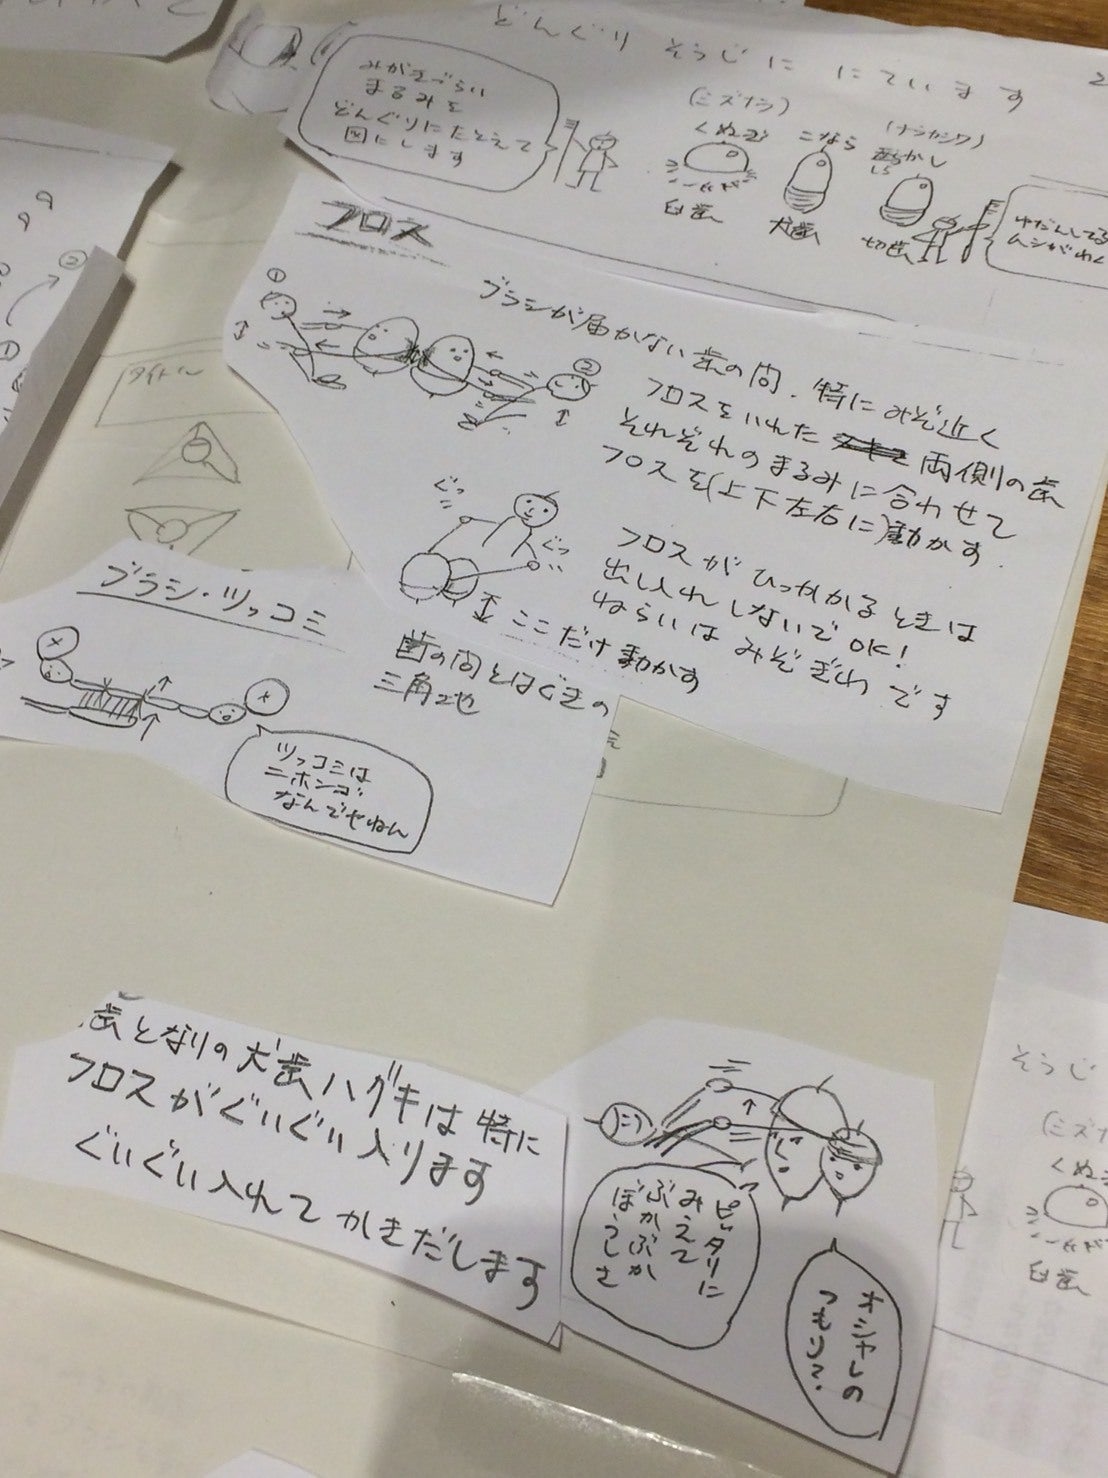 どんぐり そうじに にています
みがきづらい
まるみを
どんぐりにたとえて
図にします
(ミズナラ)
くぬぎ
臼歯
こなら
犬歯
(ナシカシワ)
しらかし
切歯
ゆだんしてる
ムシがわく
フロス
①
②
ブラシが届かない歯の間、特にみぞ近く
フロスをいれた 両側の歯
それぞれのまるみに合わせて
フロスを(上下左右に)動かす
ぐっ
ぐっ
ここだけ動かす
フロスがひっかかるときは
出し入れしないでOK!
ねらいはみぞぎわです
タイトル
②
①
ブラシ・ツッコミ
歯の間とはぐきの
三角地
ツッコミは
ニホンゴ
なんでやねん
歯となりの犬歯ハグキは特に
フロスがぐいぐい入ります
ぐいぐい入れてかきだします
ピッタリに
みえて
ぶかぶか
ぼうしさ
オシャレの
つもりで。
そうじ
(ミズナ
くぬぎ
臼歯